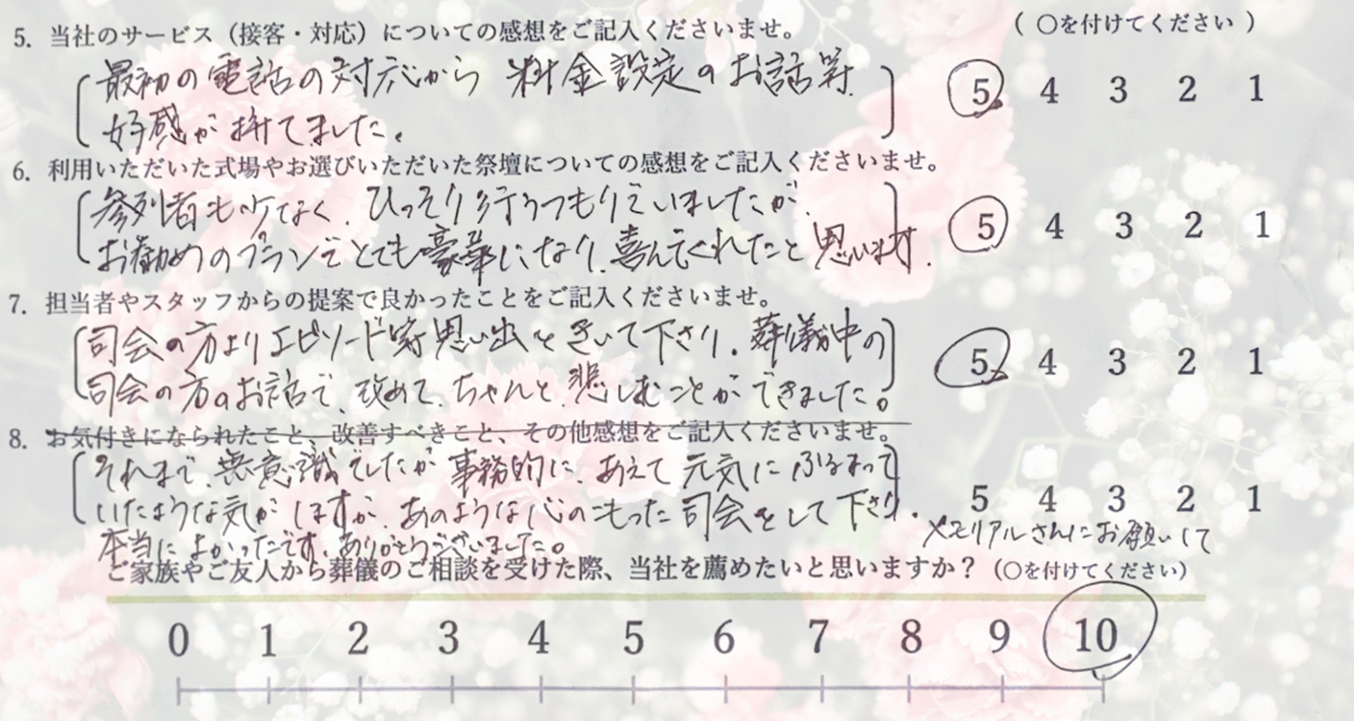 5. 当社のサービス（接客・対応）についての感想をご記入くださいませ。 （ ○を付けてください ）
最初の電話の対応から 料金設定のお話等 5 4 3 2 1
好感が持てました。
6. 利用いただいた式場やお選びいただいた祭壇についての感想をご記入くださいませ。
参列者も少なく、ひっそり行うつもりでいましたが、 5 4 3 2 1
お勧めのプランでとても豪華になり、喜んでくれたと思います。
7. 担当者やスタッフからの提案で良かったことをご記入くださいませ。
司会の方よりエピソード等思い出をきいて下さり、葬儀中の 5 4 3 2 1
司会の方のお話で、改めて、ちゃんと、悲しむことができました。
8. お気付きになられたこと、改善すべきこと、その他感想をご記入くださいませ。
それまで、無意識でしたが事務的に、あえて元気にふるまって
いたような気がしますが、あのような心のこもった司会をして下さり、 5 4 3 2 1
メモリアルさんにお願いして
本当によかったです。ありがとうございました。
ご家族やご友人から葬儀のご相談を受けた際、当社を薦めたいと思いますか？（○を付けてください）
0 1 2 3 4 5 6 7 8 9 10